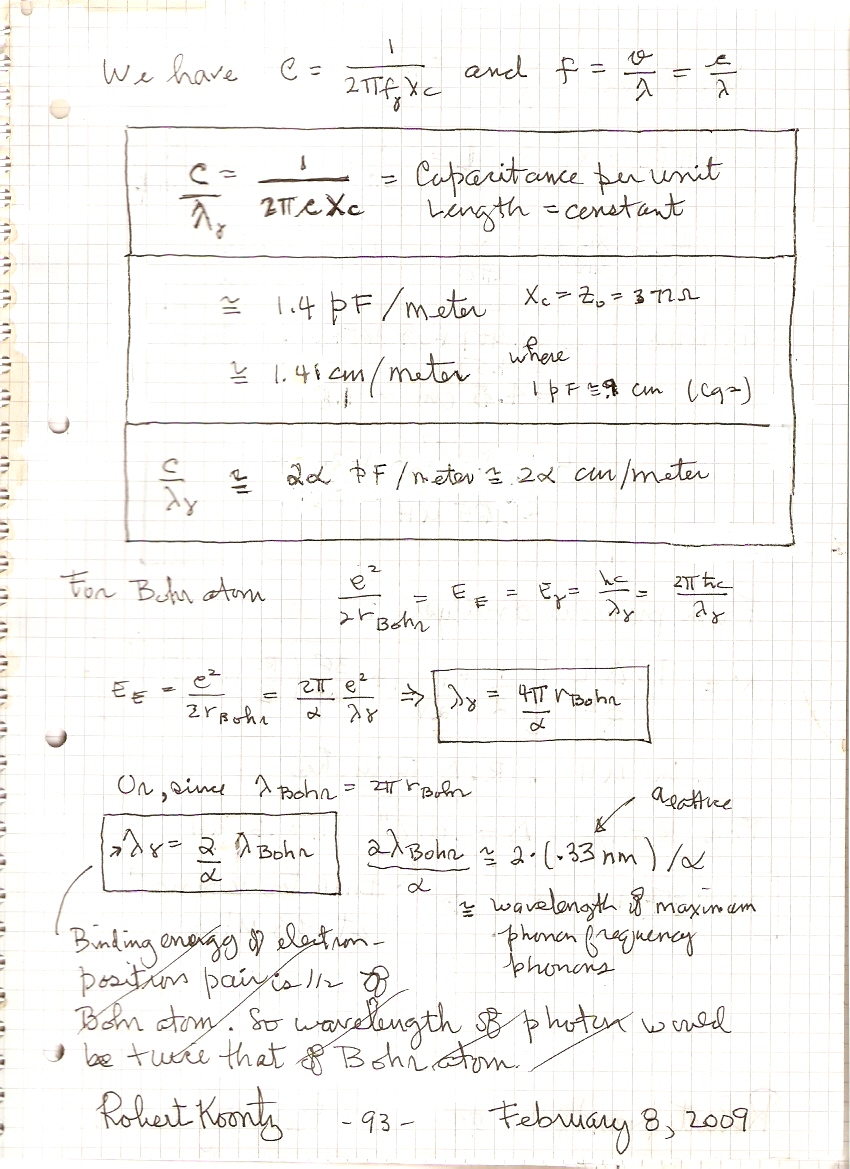 We have C = 1/(2πfᵧXc) and f = v/λ = c/λ
C/λᵧ = 1/(2πcXc) = Capacitance per unit
Length = constant
≅ 1.4 pF/meter Xc = Z₀ = 372Ω
≅ 1.41 cm/meter where
1 pF ≅ .9 cm (cgs)
C/λᵧ ≅ 2α pF/meter ≅ 2α cm/meter
For Bohr atom e²/(2r_Bohr) = E_E = Eᵧ = hc/λᵧ = 2πħc/λᵧ
E_E = e²/(2r_Bohr) = (2π/α) (e²/λᵧ) ⇒ λᵧ = (4π/α) r_Bohr
Or, since λ_Bohr = 2π r_Bohr
a_lattice
λᵧ = (2/α) λ_Bohr 2λ_Bohr/α ≅ 2·(.33 nm)/α
≅ wavelength of maximum
phonon frequency
phonons
Binding energy of electron-
positron pair is 1/2 of
Bohr atom. So wavelength of photon would
be twice that of Bohr atom.
Robert Koontz - 93 - February 8, 2009